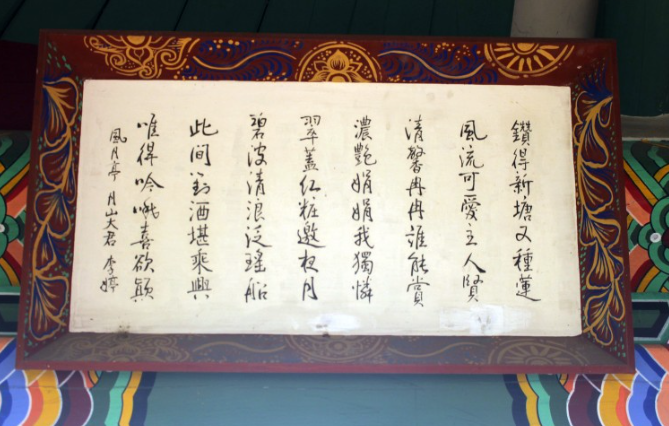 鑽得新塘又種蓮
風流可愛主人賢
清馨冉冉誰能賞
濃艶娟娟我獨憐
翠蓋紅粧邀夜月
碧波清浪泛瑤船
此间對酒堪乘興
唯得吟哦喜欲顛
風月亭 月山大君 李婷